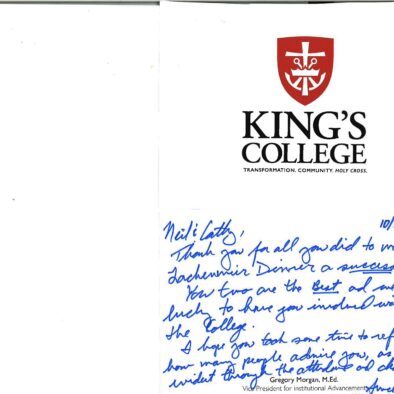 KING'S
COLLEGE
TRANSFORMATION. COMMUNITY. HOLY CROSS.
10/
Neil & Cathy,
Thank you for all you did to
Lachenmeir Dinner a success
You two are the Best ad
lucky to have you involved
the College.
I hope you took some time to
how many people admire you, as
evident through the attendance ad
Gregory Morgan, M.Ed.
Vice President for Institutional Advancement